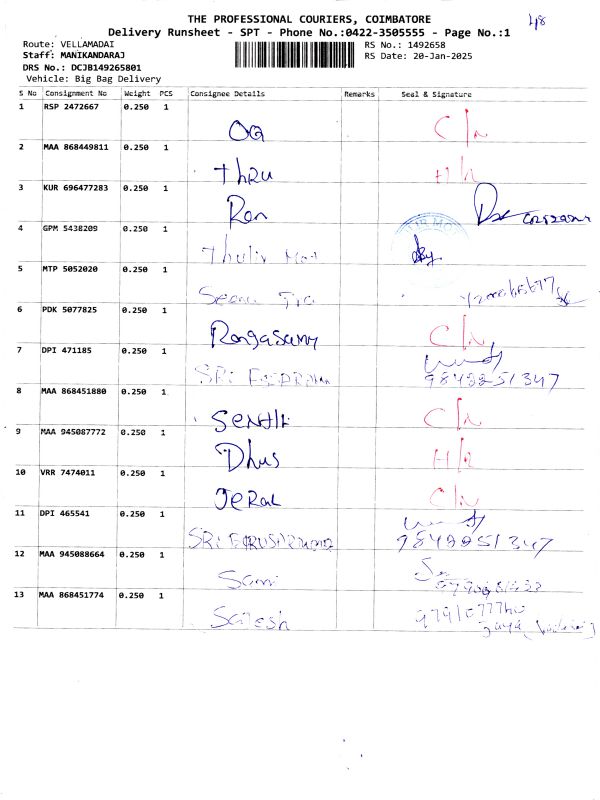 THE PROFESSIONAL COURIERS, COIMBATORE
48
Delivery Runsheet - SPT - Phone No.:0422-3505555 - Page No.:1
Route: VELLAMADAI
RS No.: 1492658
Staff: MANIKANDARAJ
RS Date: 20-Jan-2025
DRS No.: DCJB149265801
Vehicle: Big Bag Delivery
S No Consignment No Weight PCS Consignee Details Remarks Seal & Signature
1 RSP 2472667 0.250 1
OG C/n
2 MAA 868449811 0.250 1
Thru H/n
3 KUR 696477283 0.250 1
Ran
4 GPM 5438209 0.250 1
5 MTP 5052020 0.250 1
6 PDK 5077825 0.250 1
Rangasamy C/n
7 DPI 471185 0.250 1
SRI 9842251347
8 MAA 868451880 0.250 1
Senthil C/n
9 MAA 945087772 0.250 1
Dhus H/n
10 VRR 7474011 0.250 1
Jeral C/n
11 DPI 465541 0.250 1
SRI 9842251347
12 MAA 945088664 0.250 1
Sami
13 MAA 868451774 0.250 1
Satesh